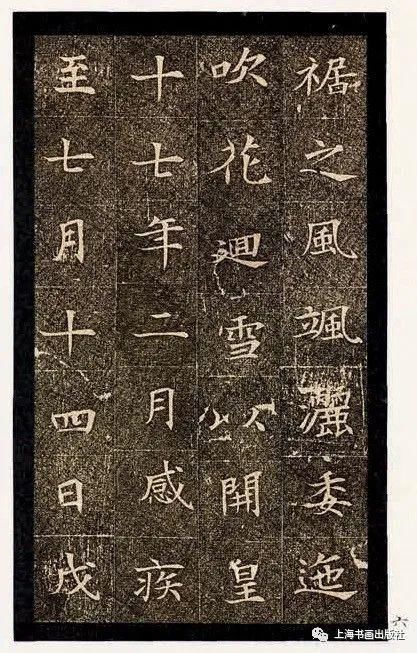 裾之風颯灑委迤
吹花迴雪以開皇
十七年二月感疾
至七月十四日戊
六
上海书画出版社